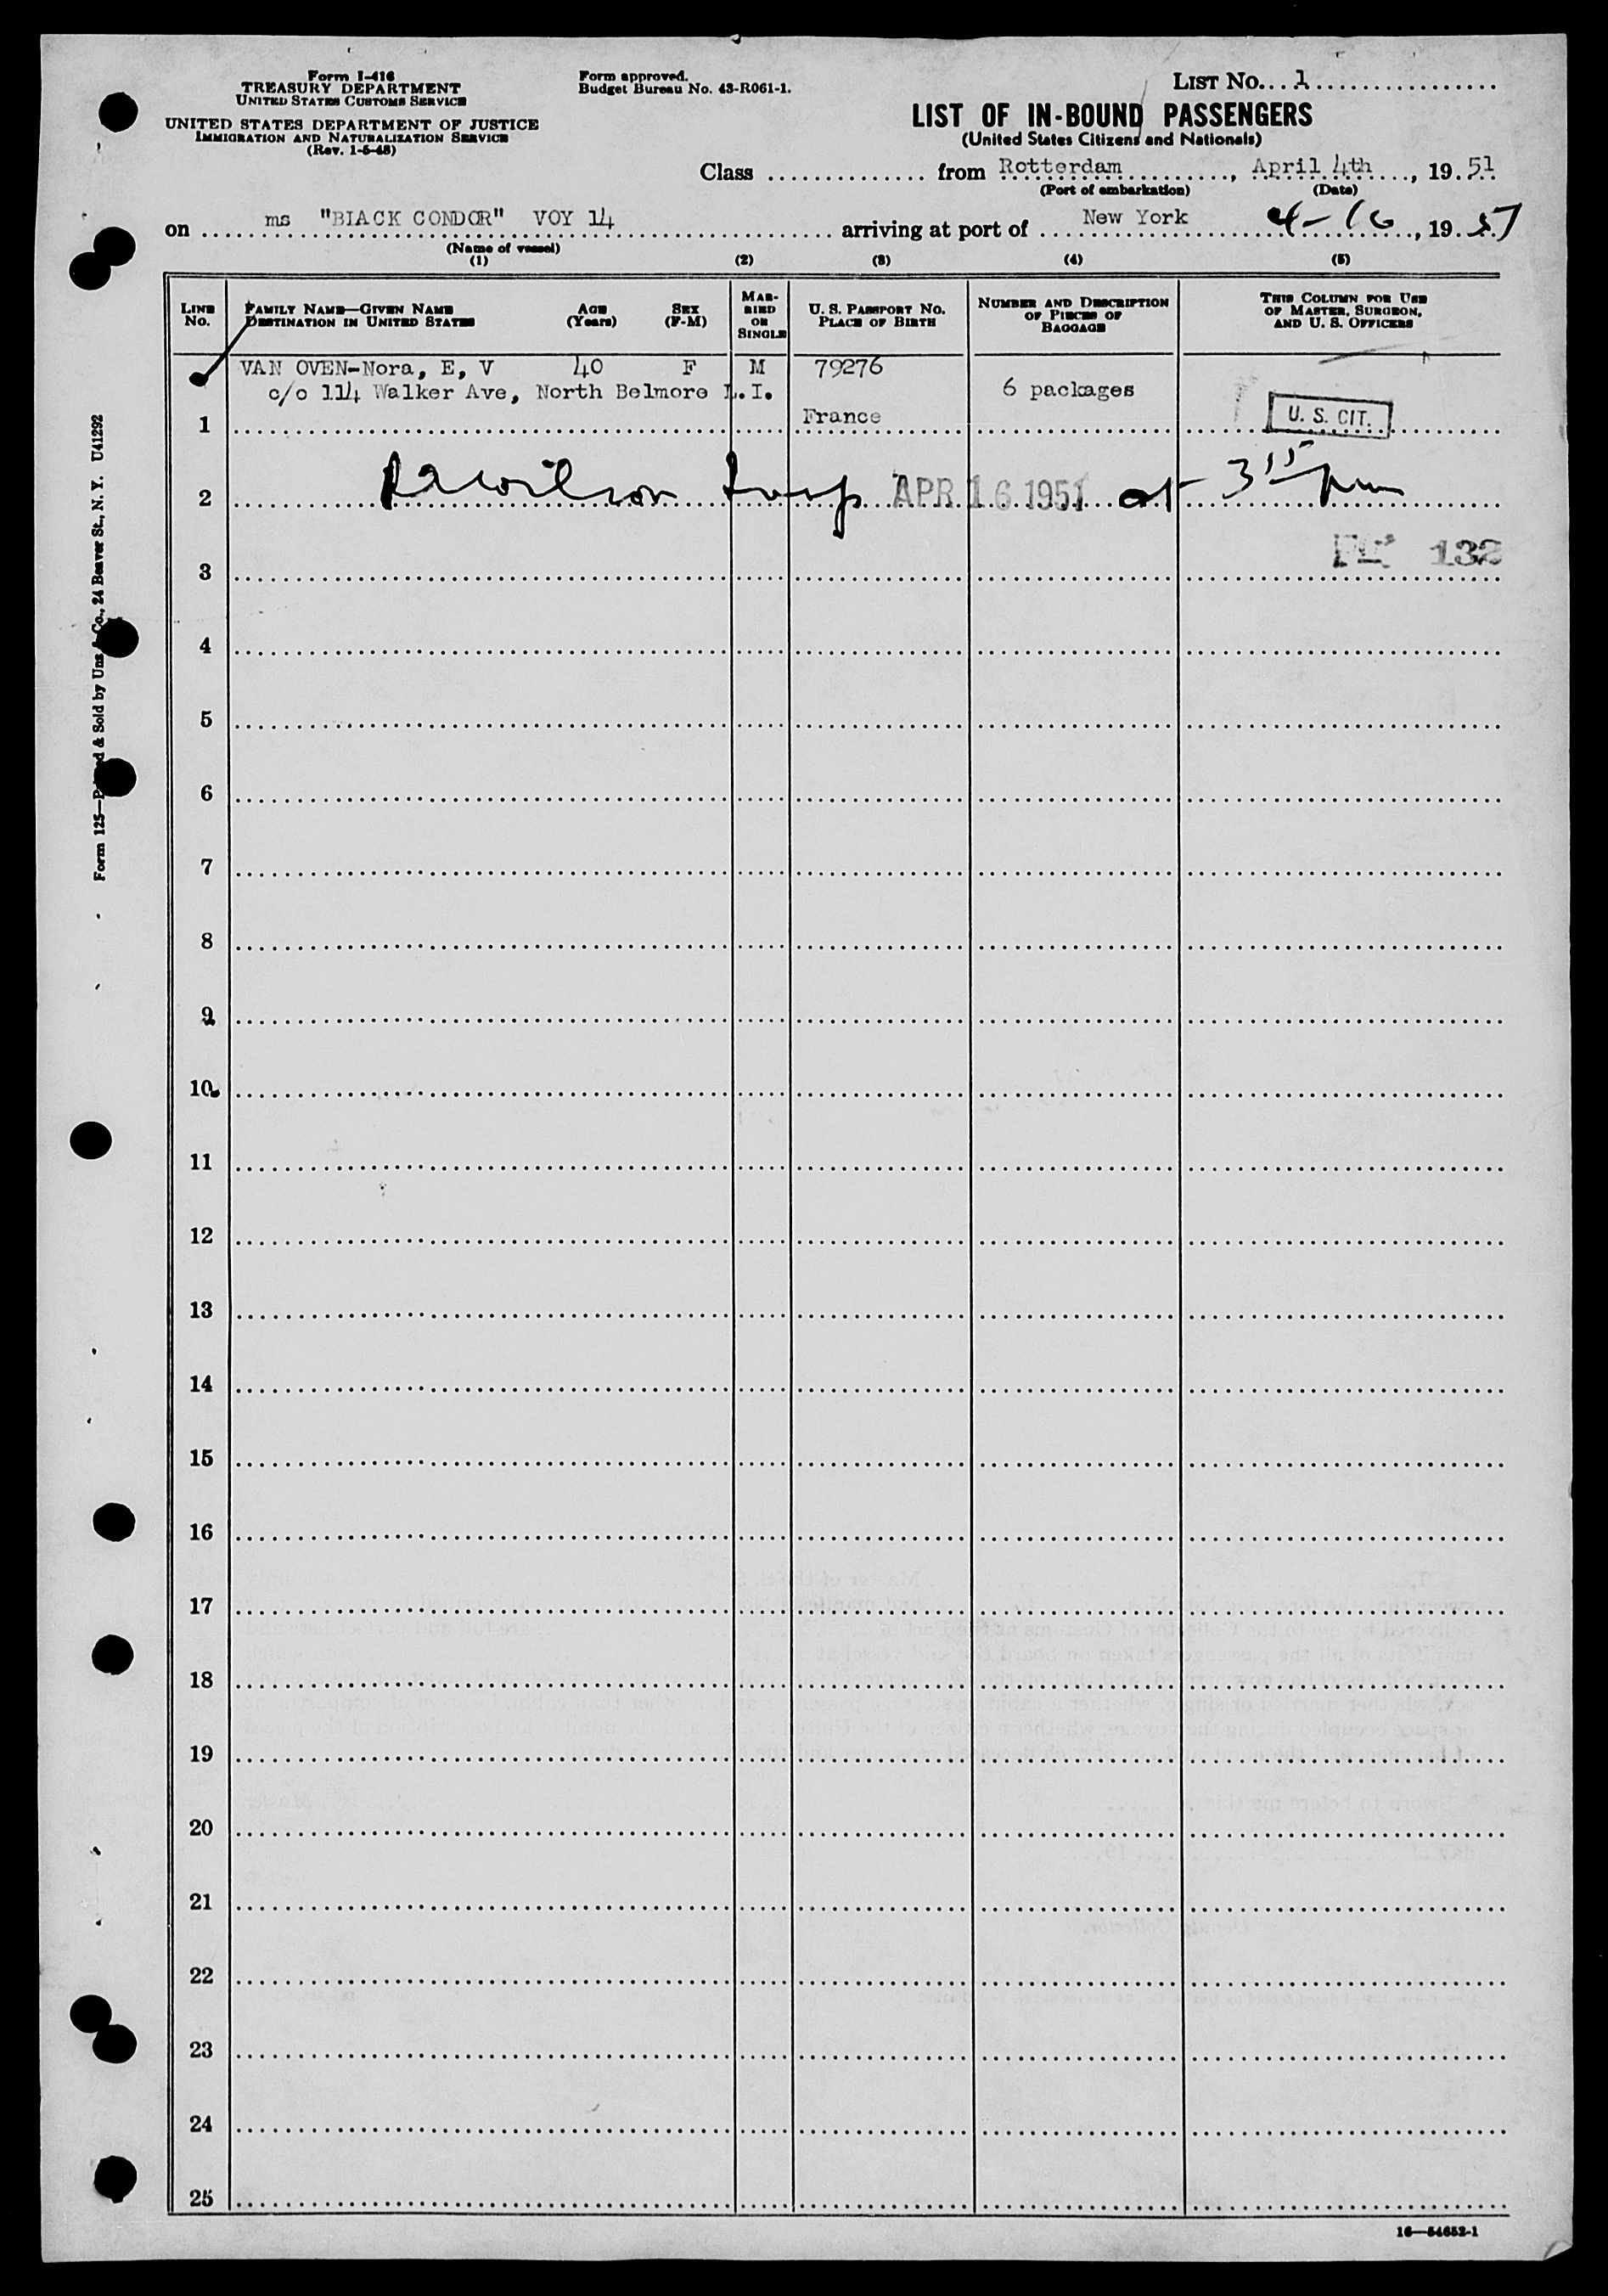 Form I-416
TREASURY DEPARTMENT
UNITED STATES CUSTOMS SERVICE
UNITED STATES DEPARTMENT OF JUSTICE
IMMIGRATION AND NATURALIZATION SERVICE
(Rev. 1-5-48)
Form approved.
Budget Bureau No. 43-R061-1.
LIST No. 1
LIST OF IN-BOUND PASSENGERS
(United States Citizens and Nationals)
Class .............. from Rotterdam, April 4th, 19 51
(Port of embarkation) (Date)
on ms "BIACK CONDOR" VOY 14 arriving at port of New York 4-16, 19 51
(Name of vessel)
(1) (2) (3) (4) (5)
LINE No. FAMILY NAME—GIVEN NAME DESTINATION IN UNITED STATES AGE (Years) SEX (F-M) MARRIED OR SINGLE U. S. PASSPORT No. PLACE OF BIRTH NUMBER AND DESCRIPTION OF PIECES OF BAGGAGE THIS COLUMN FOR USE OF MASTER, SURGEON, AND U. S. OFFICERS
VAN OVEN-Nora, E, V 40 F M 79276
c/o 114 Walker Ave, North Belmore L.I. 6 packages
1 France U. S. CIT.
2 RAWilson Insp APR 16 1951 at 3 15 pm
3 132
4
5
6
7
8
9
10
11
12
13
14
15
16
17
18
19
20
21
22
23
24
25
16—54652-1
Form 125—Printed & Sold by Unz & Co., 24 Beaver St., N. Y. U41292